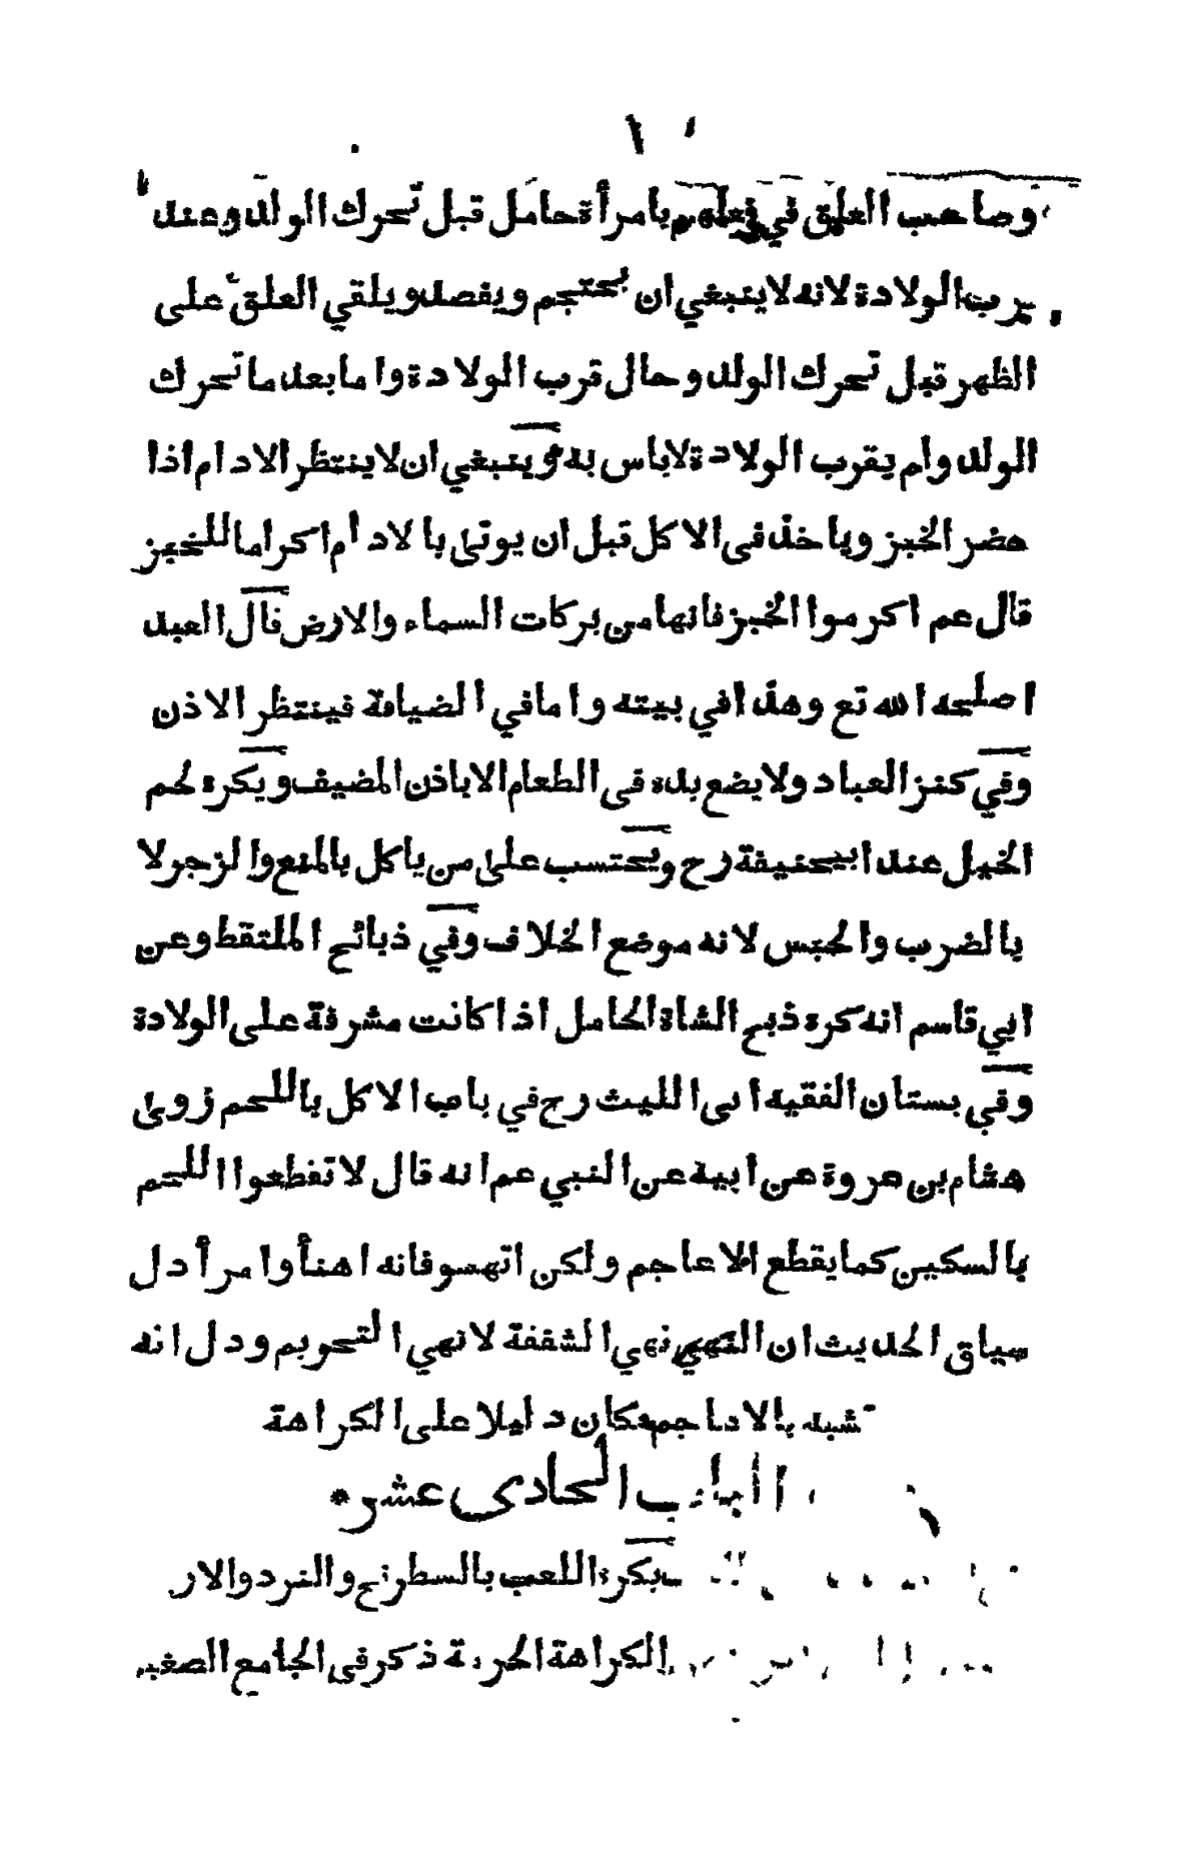 وصاحب العلق في فعلهم بامرأة حامل قبل تحرك الولد وعند
قرب الولادة لانه لا ينبغي ان يحتجم ويفصد ويلقي العلق على
الظهر قبل تحرك الولد وحال قرب الولادة واما بعد ما تحرك
الولد ولم يقرب الولادة لا باس به وينبغي ان لا ينتظر الادام اذا
حضر الخبز وياخذ في الاكل قبل ان يوتى بالادام اكراما للخبز
قال عم اكرموا الخبز فانها من بركات السماء والارض قال العبد
اصلحه الله تع وهذا في بيته واما في الضيافة فينتظر الاذن
وفي كنز العباد ولا يضع يده في الطعام الا باذن المضيف ويكره لحم
الخيل عند ابيحنيفة رح ويحتسب على من ياكل بالمنع والزجر لا
بالضرب والحبس لانه موضع الخلاف وفي ذبائح الملتقط وعن
ابي قاسم انه كره ذبح الشاة الحامل اذا كانت مشرفة على الولادة
وفي بستان الفقيه ابى الليث رح في باب الاكل باللحم روى
هشام بن عروة عن ابيه عن النبي عم انه قال لا تقطعوا اللحم
بالسكين كما يقطع الاعاجم ولكن انهسوا فانه اهنأ وامرأ دل
سياق الحديث ان النهي نهي الشفقة لا نهي التحريم ودل انه
تشبه بالاعاجم فكان دليلا على الكراهة
الباب الحادى عشر
يكره اللعب بالشطرنج والنرد والار
الكراهة الحرمة ذكر في الجامع الصغير